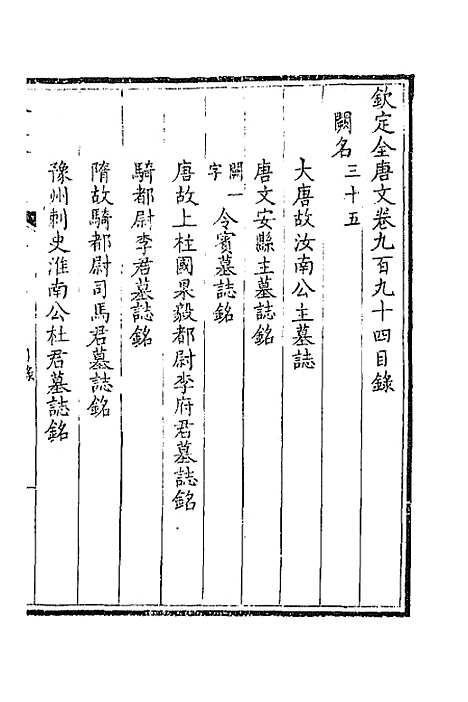 欽定全唐文卷九百九十四目錄
闕名三十五
大唐故汝南公主墓誌
唐文安縣主墓誌銘
闕一字令賓墓誌銘
唐故上柱國果毅都尉李府君墓誌銘
騎都尉李君墓誌銘
隋故騎都尉司馬君墓誌銘
豫州刺史淮南公杜君墓誌銘